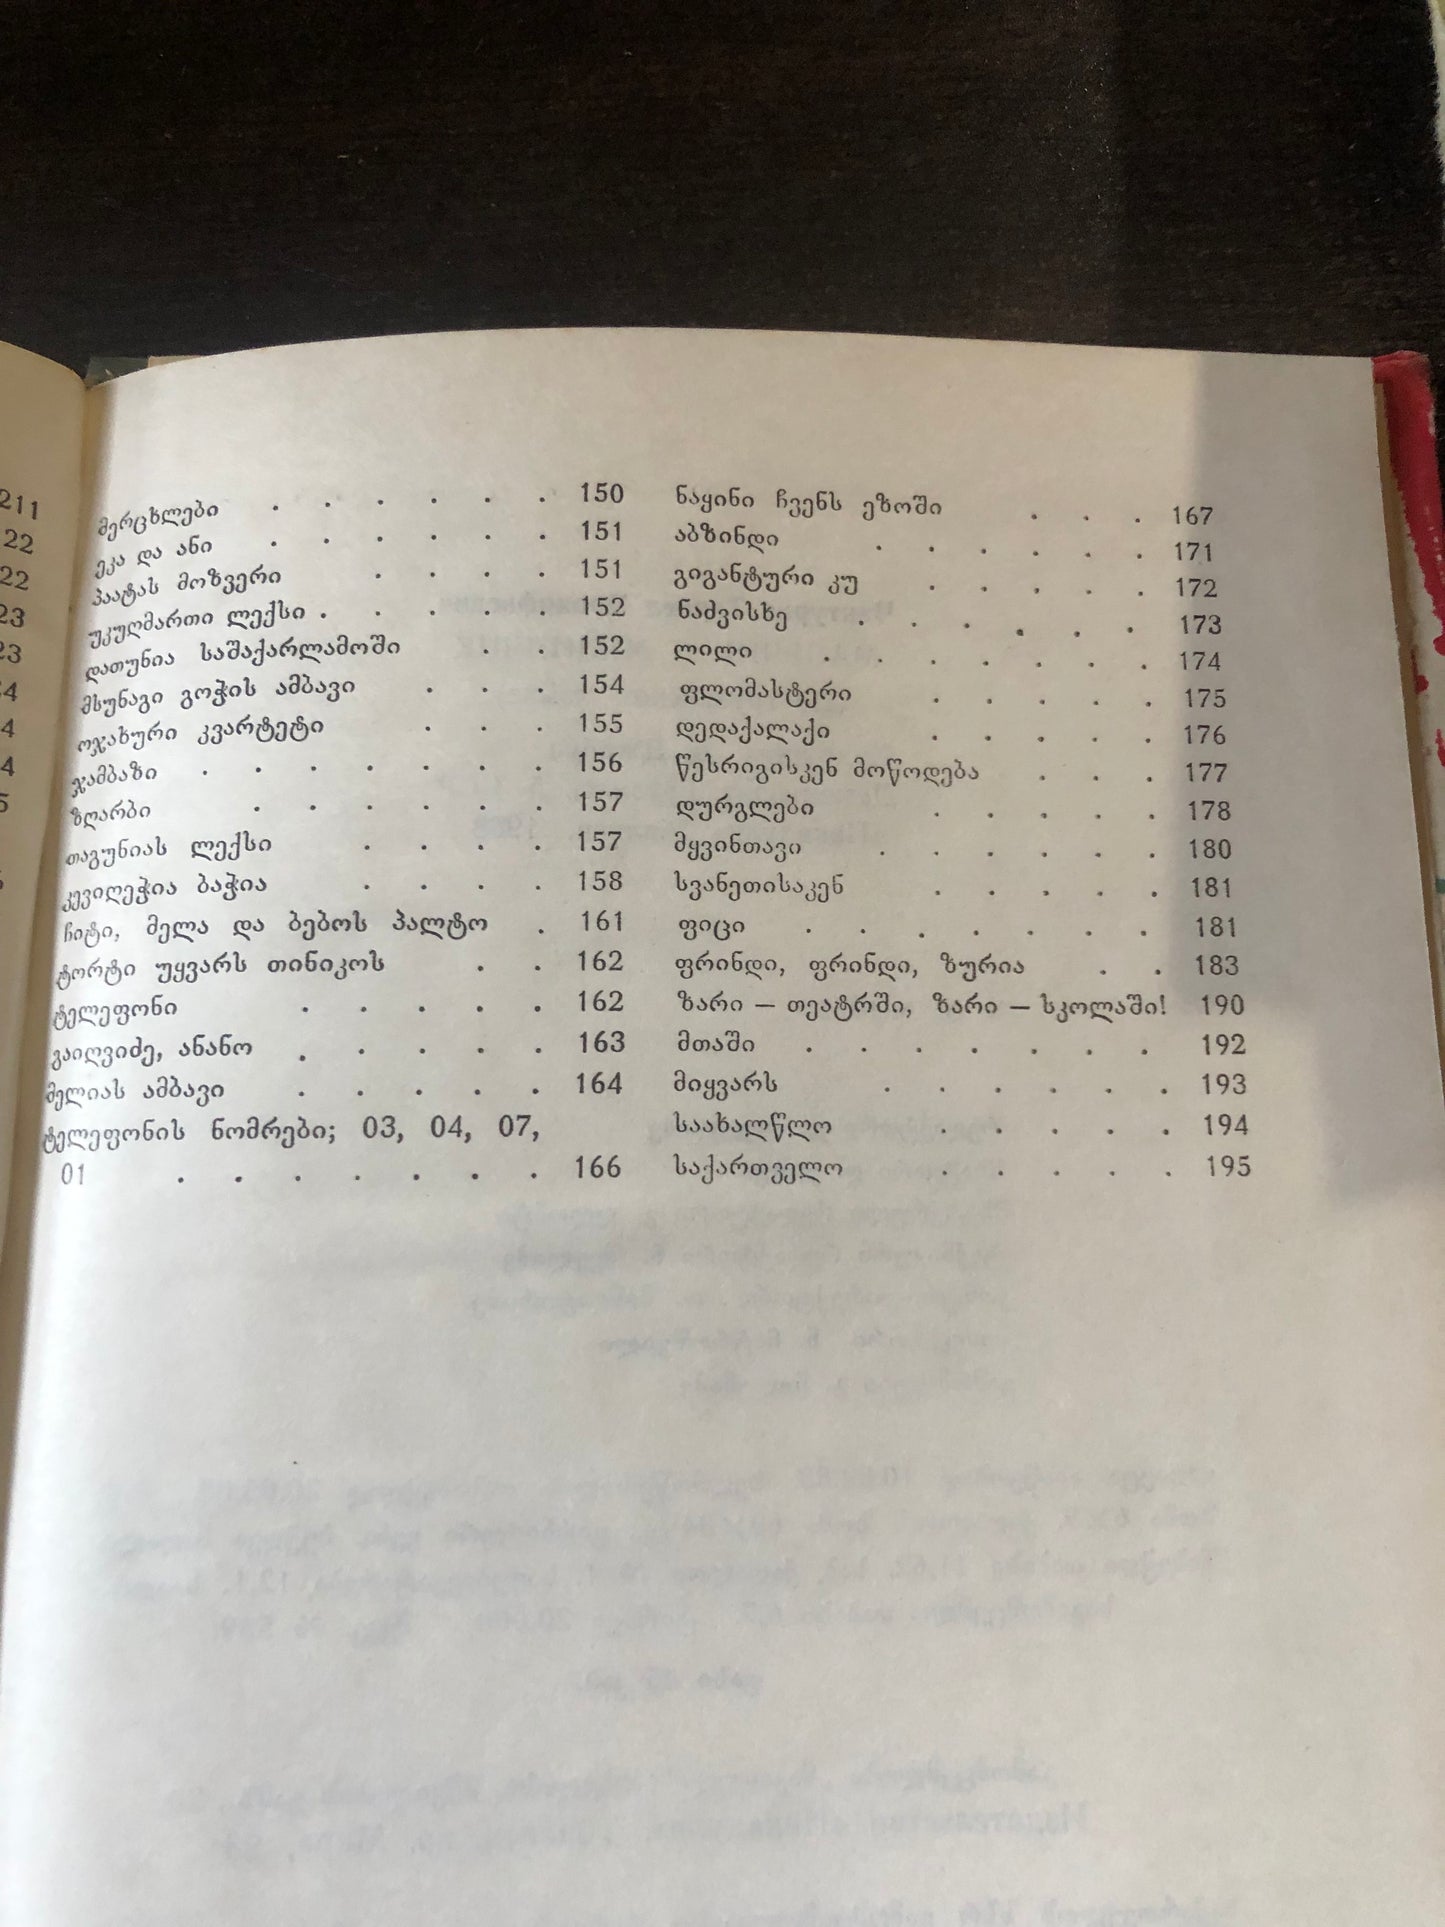 211
22
22
23
23
მერცხლები . . . . . . 150
ეკა და ანი . . . . . . 151
პაატას მოზვერი . . . . 151
უკუღმართი ლექსი . . . . . 152
დათუნია საშაქარლამოში . . 152
მსუნაგი გოჭის ამბავი . . . 154
ოჯახური კვარტეტი . . . 155
ჯამბაზი . . . . . . . 156
ზღარბი . . . . . . 157
თაგუნიას ლექსი . . . . 157
კევიღეჭია ბაჭია . . . . 158
ჩიტი, მელა და ბებოს პალტო . 161
ტორტი უყვარს თინიკოს . . 162
ტელეფონი . . . . . 162
გაიღვიძე, ანანო . . . . . 163
მელიას ამბავი . . . . . 164
ტელეფონის ნომრები; 03, 04, 07,
01 . . . . . . . 166
ნაყინი ჩვენს ეზოში . . . 167
აბზინდი . . . . . . 171
გიგანტური კუ . . . . . 172
ნაძვისხე . . . . . . 173
ლილი . . . . . . . 174
ფლომასტერი . . . . . 175
დედაქალაქი . . . . . 176
წესრიგისკენ მოწოდება . . . 177
დურგლები . . . . . 178
მყვინთავი . . . . . . 180
სვანეთისაკენ . . . . . 181
ფიცი . . . . . . . 181
ფრინდი, ფრინდი, ზურია . . 183
ზარი — თეატრში, ზარი — სკოლაში! 190
მთაში . . . . . . . 192
მიყვარს . . . . . . 193
საახალწლო . . . . . 194
საქართველო . . . . . 195